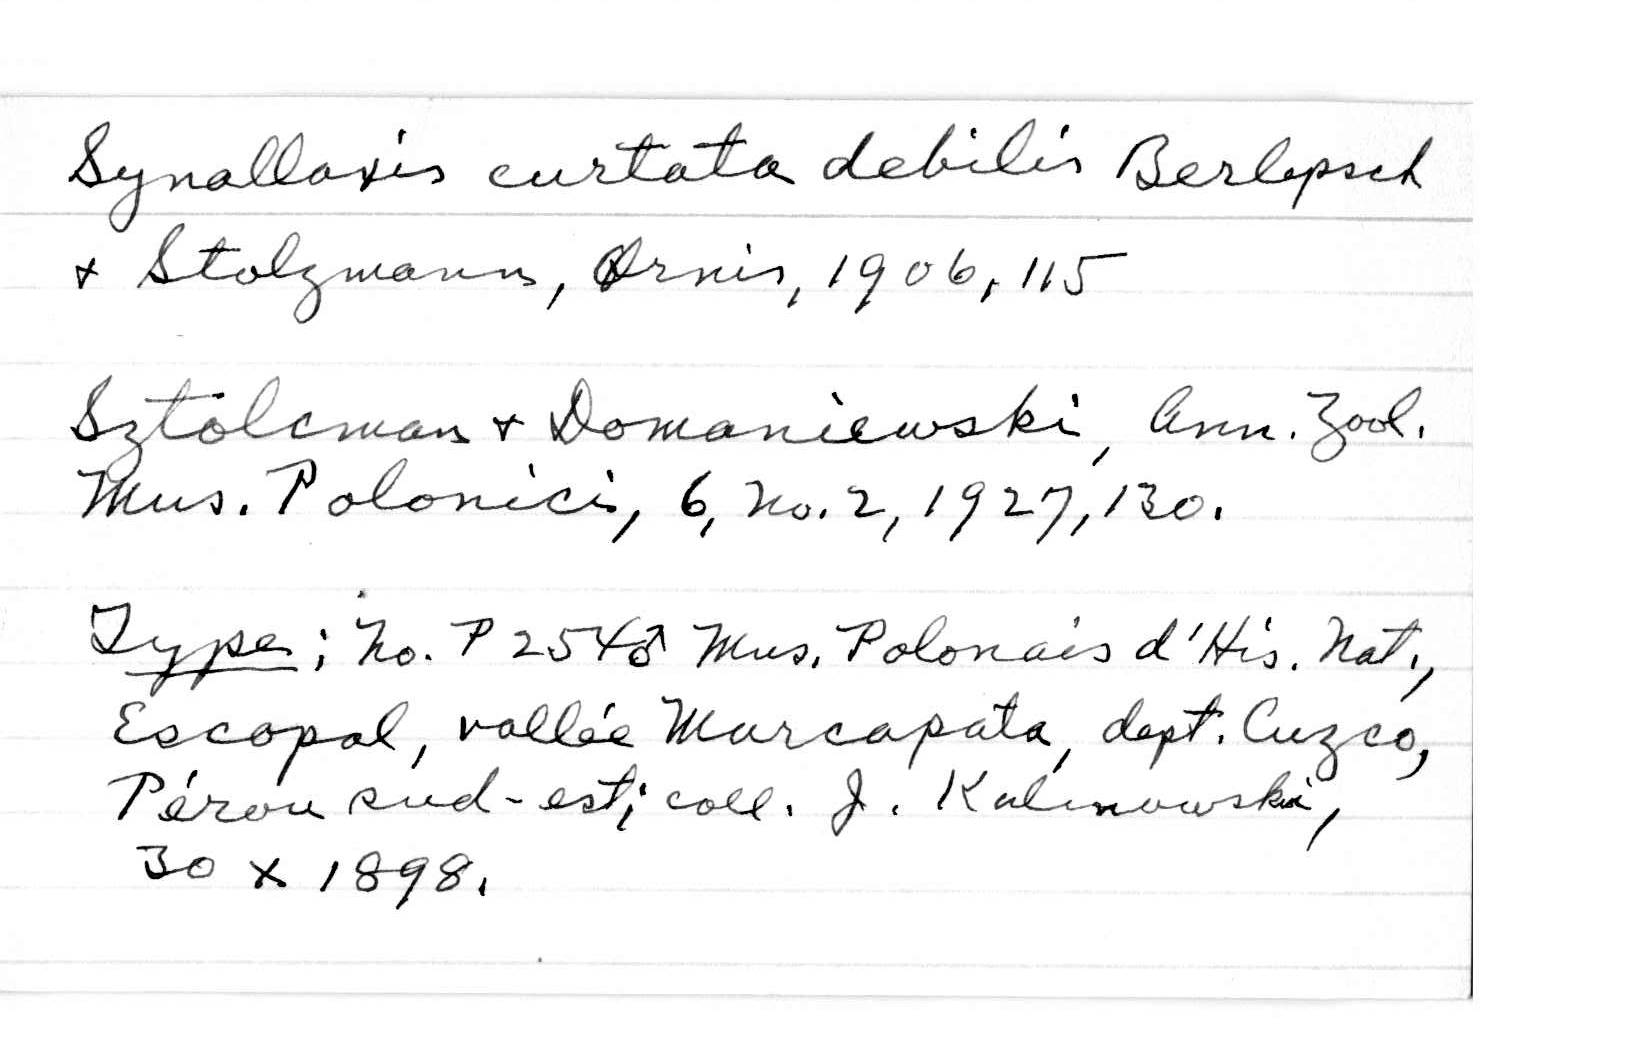 Synallaxis curtata debilis Berlepsch
& Stolzmann, Ornis, 1906, 115
Sztolcman & Domaniewski, Ann. Zool.
Mus. Polonici, 6, no. 2, 1927, 130.
Type; no. P 254 ♂ Mus. Polonais d'His. Nat.,
Escopal, vallée Marcapata, dept. Cuzco,
Pérou sud-est; coll. J. Kalinowski,
30 X 1898.